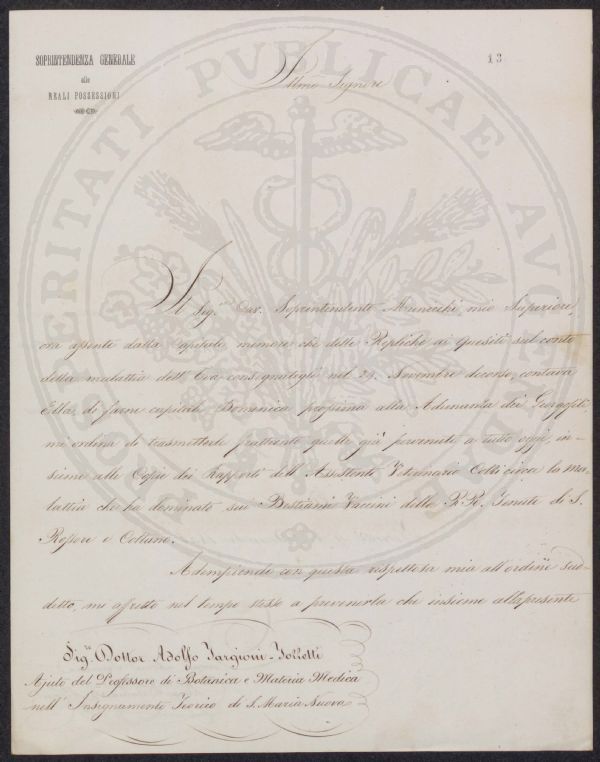 SOPRINTENDENZA GENERALE
alle
REALI POSSESSIONI
13
Illmo Signore
Il Sig.re Cav. Soprintendente Municchi mio Superiore,
ora assente dalla Capitale, memore che delle Repliche ai quesiti sul conto
della malattia dell' Uva consegnategli nel 29. Novembre decorso, contava
Ella di farne capitale Domenica prossima alla Adunanza dei Georgofili
mi ordina di trasmetterle frattanto quelle già pervenute a tutto oggi, in-
sieme alle Copie dei Rapporti dell' Assistente Veterinario circa la ma-
lattia che ha dominato sui Bestiami Vaccini delle RR. Tenute di S.
Rossore e Coltano.
Adempiendo con questa rispettosa mia all' ordine sud-
detto, mi affretto nel tempo stesso a prevenirla che insieme alla presente
Sig.re Dottor Adolfo Targioni-Tozzetti
Ajuto del Professore di Botanica e Materia Medica
nell' Insegnamento Teorico di S. Maria Nuova
PROSPERITATI PUBLICAE AUGENDAE